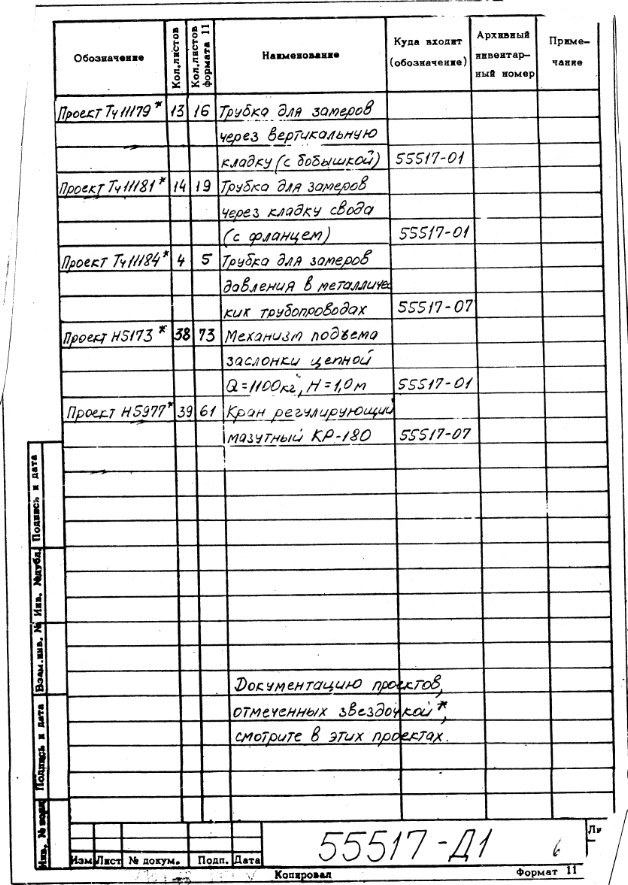 Обозначение Кол.листов Кол.листов формата 11 Наименование Куда входит (обозначение) Архивный инвентарный номер Примечание
Проект Тч11179* 13 16 Трубка для замеров
через вертикальную
кладку (с бобышкой) 55517-01
Проект Тч11181* 14 19 Трубка для замеров
через кладку свода
(с фланцем) 55517-01
Проект Тч11184* 4 5 Трубка для замеров
давления в металличес
ких трубопроводах 55517-07
Проект Н5173* 38 73 Механизм подъема
заслонки цепной
Q=1100кг, Н=1,0м 55517-01
Проект Н5977* 39 61 Кран регулирующий
мазутный КР-180 55517-07
Документацию проектов,
отмеченных звездочкой*,
смотрите в этих проектах.
Подпись и дата
Инв. №дубл.
Взам.инв. №
Подпись и дата
Инв. № подл
55517-Д1 6
Ли
Изм Лист № докум. Подп. Дата
Копировал Формат 11